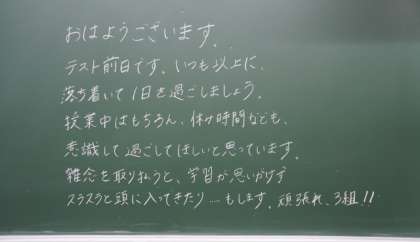 おはようございます。
テスト前日です。いつも以上に、
落ち着いて1日を過ごしましょう。
授業中はもちろん、休み時間なども、
意識して過ごしてほしいと思っています。
雑念を取り払うと、学習が思いがけず
スラスラと頭に入ってきたり……もします。頑張れ、3組!!